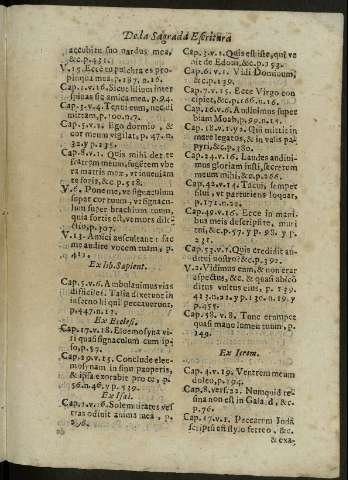 De la Sagrada Escritura
accubitu suo nardus mea,
&c. p.431.
V.15. Ecce tu pulchra es pro
pinqua mea, p.187. n.16.
Cap.2.v.16. Sicut lilium inter
spinas sic amica mea, p.94.
Cap.3.v.4. Tenui eum, nec di
mittam, p.100. n.7.
Cap.5.v.2. Ego dormio, &
cor meum vigilat, p.47. n.
32. y p.235.
Cap.8.v.1. Quis mihi det te
fratrem meum, sugẽtem vbe
ra matris meæ, vt inueniam
te foris, &c. p.518.
V.6. Pone me, vt signaculum
super cor tuum, vt signacu-
lum super brachium tuum,
quia fortis est, vt mors dile-
ctio, p.307.
V.13. Amici auscultant: fac
me audire vocem tuam, p.
412.
Ex lib. Sapient.
Cap.5.v.6. Ambulauimus vias
difficiles. Talia dixerunt in
inferno hi qui peccauerunt,
p.447. n.17.
Ex Eclesi.
Cap.17.v.18. Eleemosyna vi-
ri quasi signaculum cum ip-
so, p.57.
Cap.29.v.15. Conclude elee-
mosynam in sinu pauperis,
& ipsa exorabit pro te, p.
56. n.46. y p.539.
Ex Isai.
Cap.1.v.16. Solemnitates ves
tras odiuit anima mea, p.
298.
Cap.3.v.1. Quis est iste, qui ve
nit de Edom, &c. p.153.
Cap.6.v.1. Vidi Dominum,
&c. p.139.
Cap.7.v.15. Ecce Virgo con
cipiet, &c. p.166. n.16.
Cap.16.v.6. Audiuimus super
biam Moab, p.99. n.15.
Cap.18.v.1.y2. Qui mittit in
mare legatos, & in valis pa-
pyri, &c. p.380.
Cap.24.v.16. Laudes audiui-
mus gloriam iusti, secretum
meum mihi, &c. p.306.
Cap.42.v.14. Tacui, semper
silui, vt parturiens loquar,
p.171. n.22.
Cap.49.v.16. Ecce in mani
bus meis descripsi te, muri
tui, &c. p.57. y p.98. y p.
231.
Cap.53.v.1. Quis credidit au-
ditui nostro? &c. p.392.
V.2. Vidimus eum, & non erat
aspectus, &c. & quasi abscõ
ditus vultus eius, p. 139.
413. n.21. y p.130. n.19. y
p.495.
Cap.58.v.8. Tunc erumpet
quasi mane lumen tuum, p.
149.
Ex Ierem.
Cap.4.v.19. Ventrem meum
doleo, p.194.
Cap.8. vers.22. Numquid re-
sina non est in Galaad, &c.
p.76.
Cap.17.v.1. Peccatum Iuda
scriptũ est stylo ferreo, &c.
& exa-